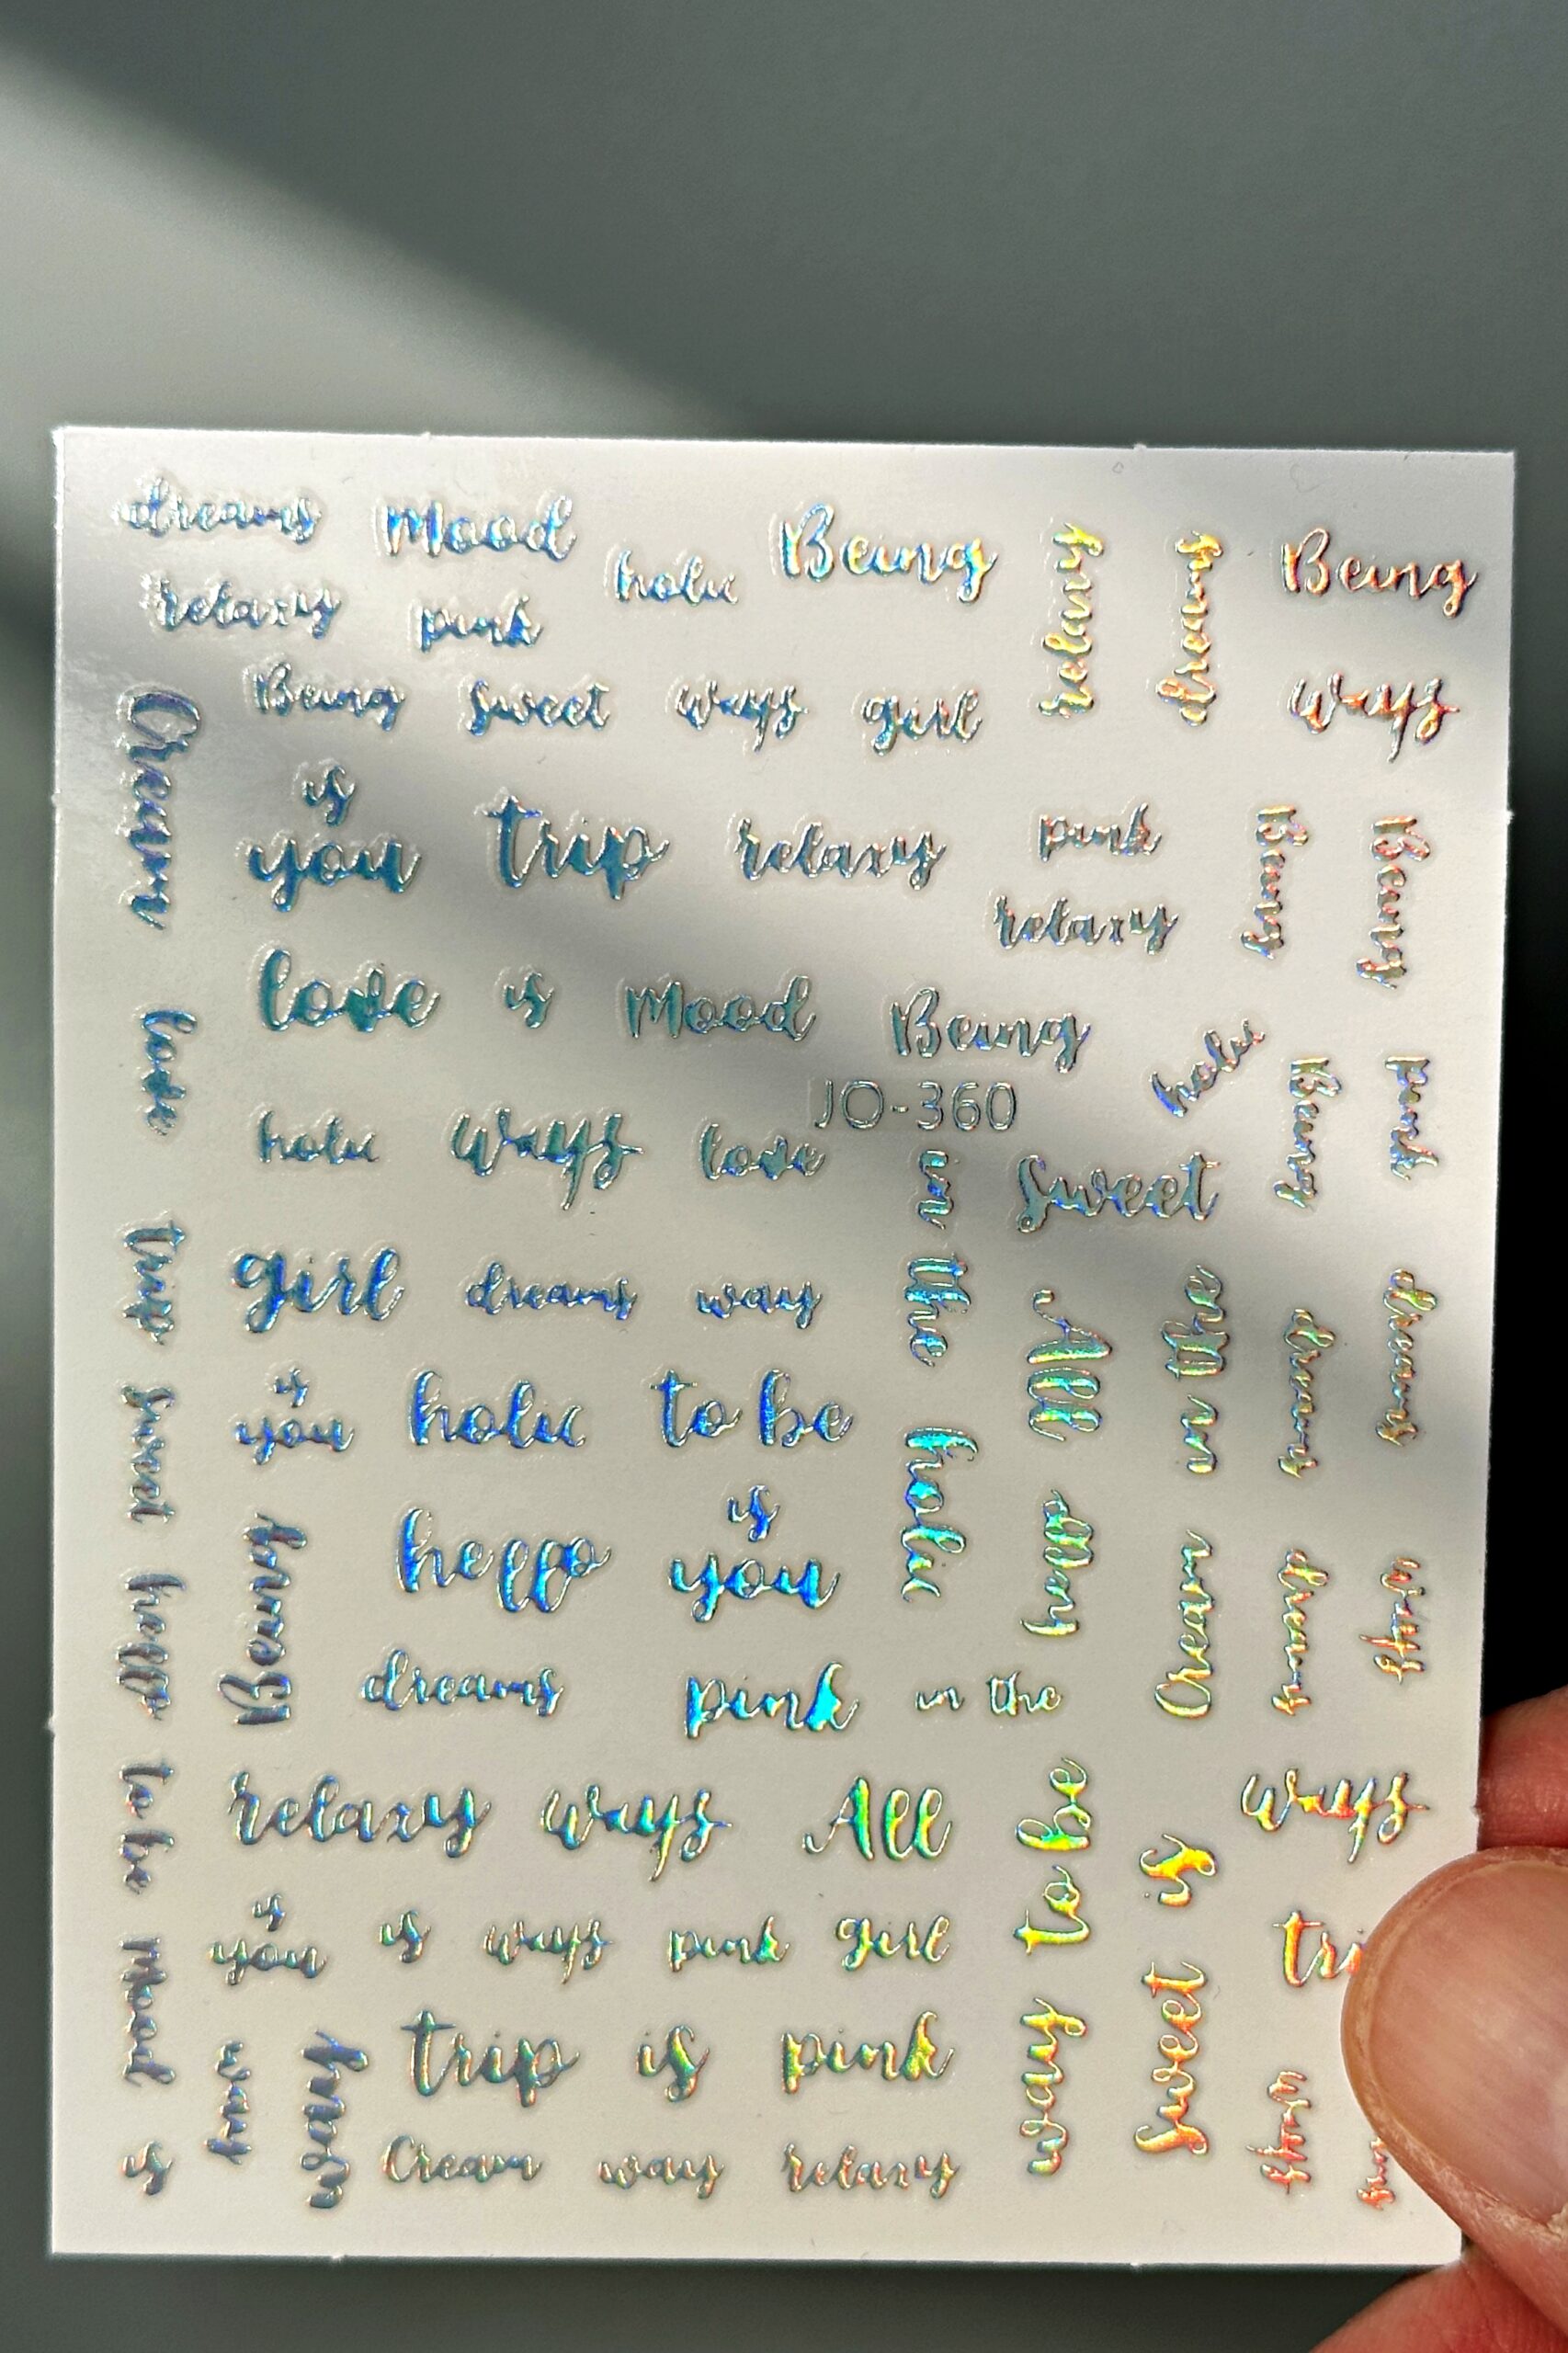 dreams Mood holic Being relaxy dreams Being
relaxy pink
Being sweet ways girl ways
Cream
is
you trip relaxy pink Being Being
relaxy
love is Mood Being
love holic Being pink
JO-360
holic ways love in the sweet
trip girl dreams way All in the dreams dreams
is
you holic to be
sweet holic
is
hello Being hello you hello Cream dreams ways
dreams pink in the
to be relaxy ways All to be ways
is
you is ways pink girl sweet is
Mood trip is pink way
way ways
is Cream way relaxy